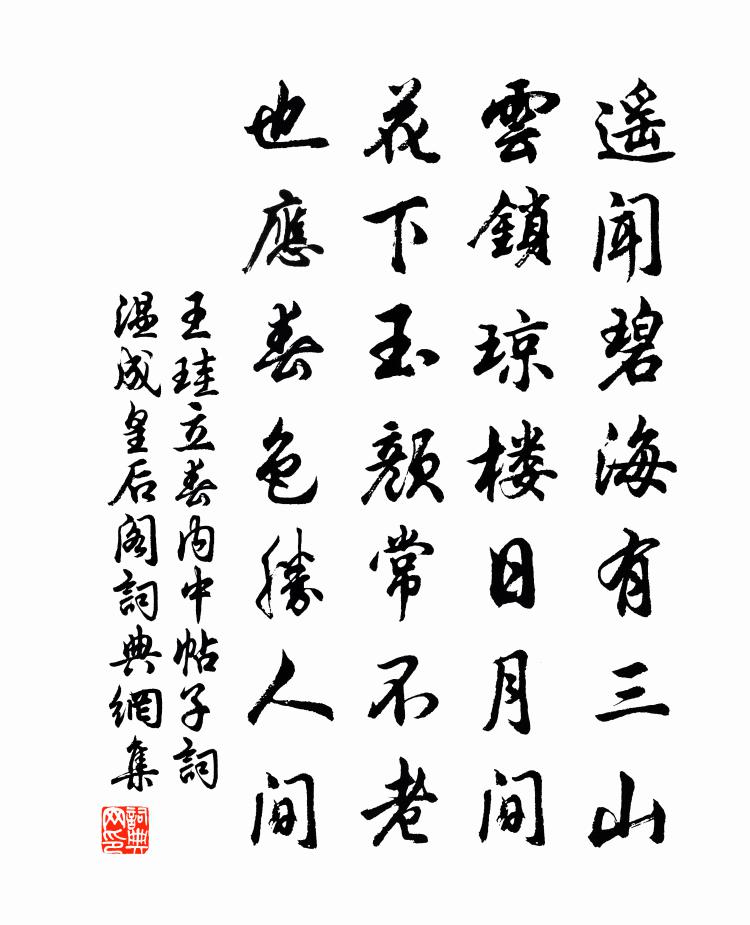 遥聞碧海有三山
雲鎖琼楼日月间
花下玉颜常不老
也應春色勝人间
王珪立春内中帖子詞
温成皇后阁詞典網集
詞典网印